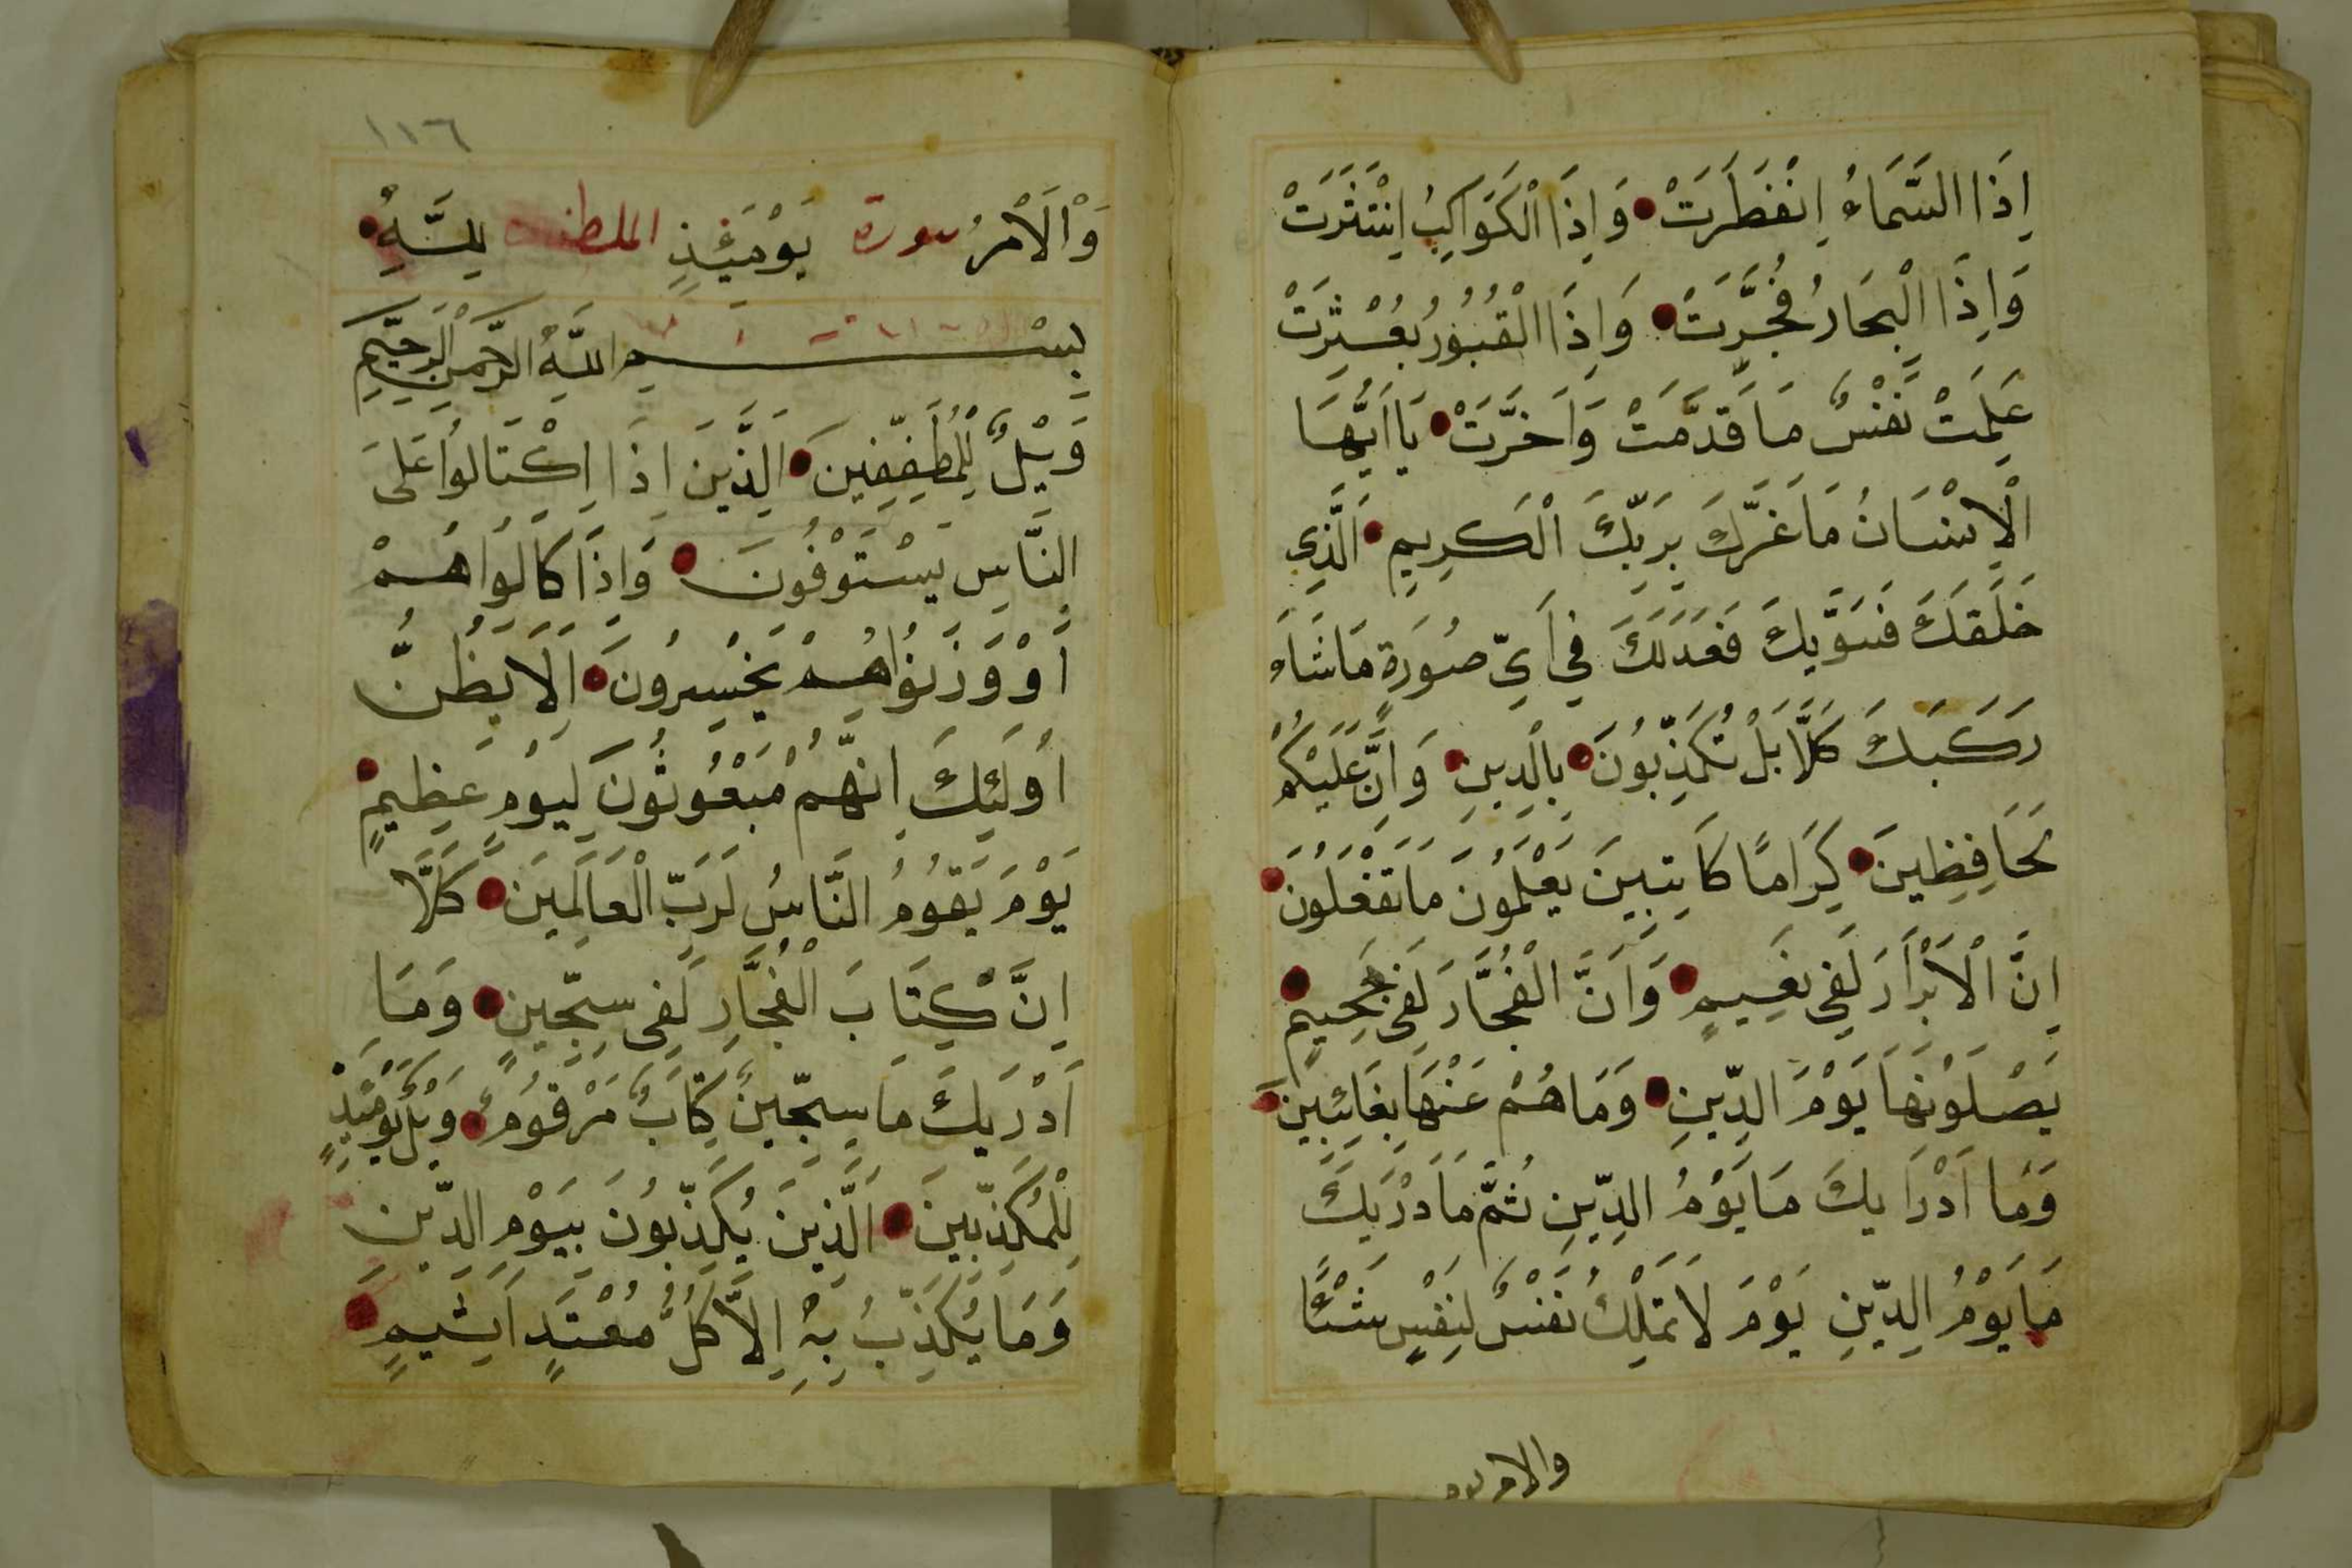 اِذَا السَّمَاءُ اِنْفَطَرَتْ وَاِذَا الْكَوَاكِبُ اِنْتَثَرَتْ
وَاِذَا الْبِحَارُ فُجِّرَتْ وَاِذَا الْقُبُورُ بُعْثِرَتْ
عَلِمَتْ نَفْسٌ مَا قَدَّمَتْ وَاَخَّرَتْ يَا اَيُّهَا
الْاِنْسَانُ مَا غَرَّكَ بِرَبِّكَ الْكَرِيمِ اَلَّذِي
خَلَقَكَ فَسَوَّيكَ فَعَدَلَكَ فِي اَيِّ صُورَةٍ مَا شَاءَ
رَكَّبَكَ كَلَّا بَلْ تُكَذِّبُونَ بِالدِّينِ وَاِنَّ عَلَيْكُمْ
لَحَافِظِينَ كِرَامًا كَاتِبِينَ يَعْلَمُونَ مَا تَفْعَلُونَ
اِنَّ الْاَبْرَارَ لَفِي نَعِيمٍ وَاِنَّ الْفُجَّارَ لَفِي جَحِيمٍ
يَصْلَوْنَهَا يَوْمَ الدِّينِ وَمَا هُمْ عَنْهَا بِغَائِبِينَ
وَمَا اَدْرَايكَ مَا يَوْمُ الدِّينِ ثُمَّ مَا اَدْرَيكَ
مَا يَوْمُ الدِّينِ يَوْمَ لَا تَمْلِكُ نَفْسٌ لِنَفْسٍ شَيْئًا
والامر يوم
١١٦
وَالْاَمْرُ سورة يَوْمَئِذٍ المطففين لِلَّهِ
بِسْمِ اللَّهِ الرَّحْمَنِ الرَّحِيمِ
وَيْلٌ لِلْمُطَفِّفِينَ اَلَّذِينَ اِذَا اكْتَالُوا عَلَى
النَّاسِ يَسْتَوْفُونَ وَاِذَا كَالُوا هُمْ
اَوْ وَزَنُوا هُمْ يُخْسِرُونَ اَلَا يَظُنُّ
اُولَئِكَ اَنَّهُمْ مَبْعُوثُونَ لِيَوْمٍ عَظِيمٍ
يَوْمَ يَقُومُ النَّاسُ لِرَبِّ الْعَالَمِينَ كَلَّا
اِنَّ كِتَابَ الْفُجَّارِ لَفِي سِجِّينٍ وَمَا
اَدْرَيكَ مَا سِجِّينٌ كِتَابٌ مَرْقُومٌ وَيْلٌ يَوْمَئِذٍ
لِلْمُكَذِّبِينَ اَلَّذِينَ يُكَذِّبُونَ بِيَوْمِ الدِّينِ
وَمَا يُكَذِّبُ بِهِ اِلَّا كُلُّ مُعْتَدٍ اَثِيمٍ